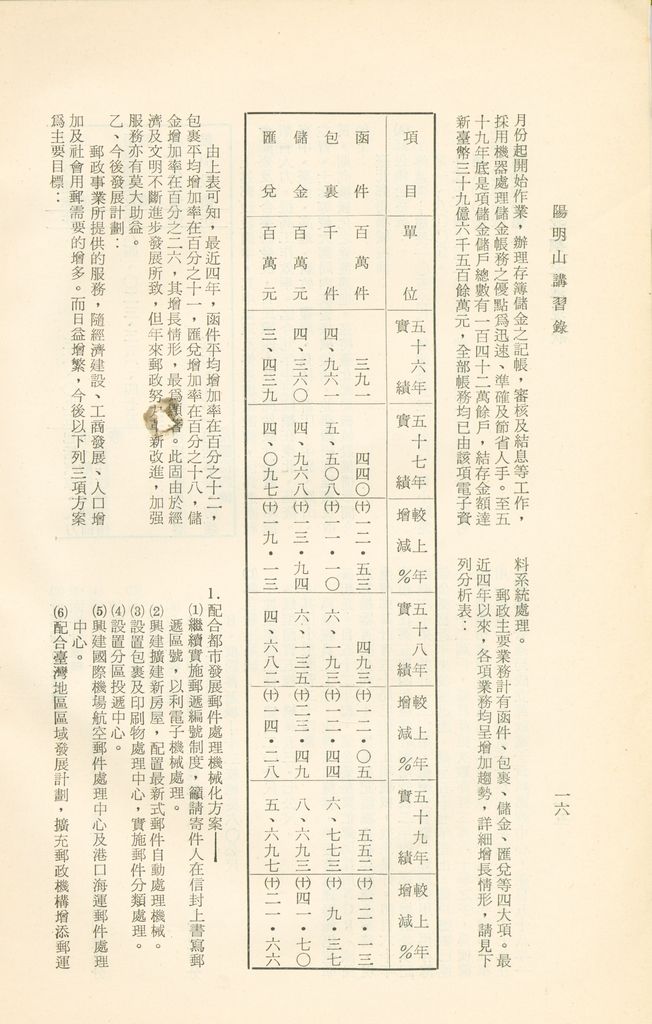 陽明山講習錄
一六
月份起開始作業，辦理存簿儲金之記帳，審核及結息等工作，
採用機器處理儲金帳務之優點爲迅速、準確及節省人手。至五
十九年底是項儲金儲戶總數有一百四十二萬餘戶，結存金額達
新臺幣三十九億六千五百餘萬元，全部帳務均已由該項電子資
料系統處理。
郵政主要業務計有函件、包裹、儲金、匯兌等四大項。最
近四年以來，各項業務均呈增加趨勢，詳細增長情形，請見下
列分析表：
項目 單位 五十六年實績 五十七年實績 較上年增減% 五十八年實績 較上年增減% 五十九年實績 較上年增減%
函件 百萬件 三九一 四四〇 ㈩一二・五三 四九三 ㈩一二・〇五 五五二 ㈩一二・一三
包裹 千件 四、九六一 五、五〇八 ㈩一一・一〇 六、一九三 ㈩一二・四四 六、七七三 ㈩九・三七
儲金 百萬元 四、三六〇 四、九六八 ㈩一三・九四 六、一三五 ㈩二三・四九 八、六九三 ㈩四一・七〇
匯兌 百萬元 三、四三九 四、〇九七 ㈩一九・一三 四、六八二 ㈩一四・二八 五、六九七 ㈩二一・六六
由上表可知，最近四年，函件平均增加率在百分之十二，
包裹平均增加率在百分之十一，匯兌增加率在百分之十八，儲
金增加率在百分之二六，其增長情形，最爲著。此固由於經
濟及文明不斷進步發展所致，但年來郵政努新改進，加强
服務亦有莫大助益。
乙、今後發展計劃：
郵政事業所提供的服務，隨經濟建設、工商發展、人口增
加及社會用郵需要的增多。而日益增繁，今後以下列三項方案
爲主要目標：
1.配合都市發展郵件處理機械化方案——
⑴繼續實施郵遞編號制度，籲請寄件人在信封上書寫郵
遞區號，以利電子機械處理。
⑵興建擴建新房屋，配置最新式郵件自動處理機械。
⑶設置包裹及印刷物處理中心，實施郵件分類處理。
⑷設置分區投遞中心。
⑸興建國際機場航空郵件處理中心及港口海運郵件處理
中心。
⑹配合臺灣地區區域發展計劃，擴充郵政機構增添郵運